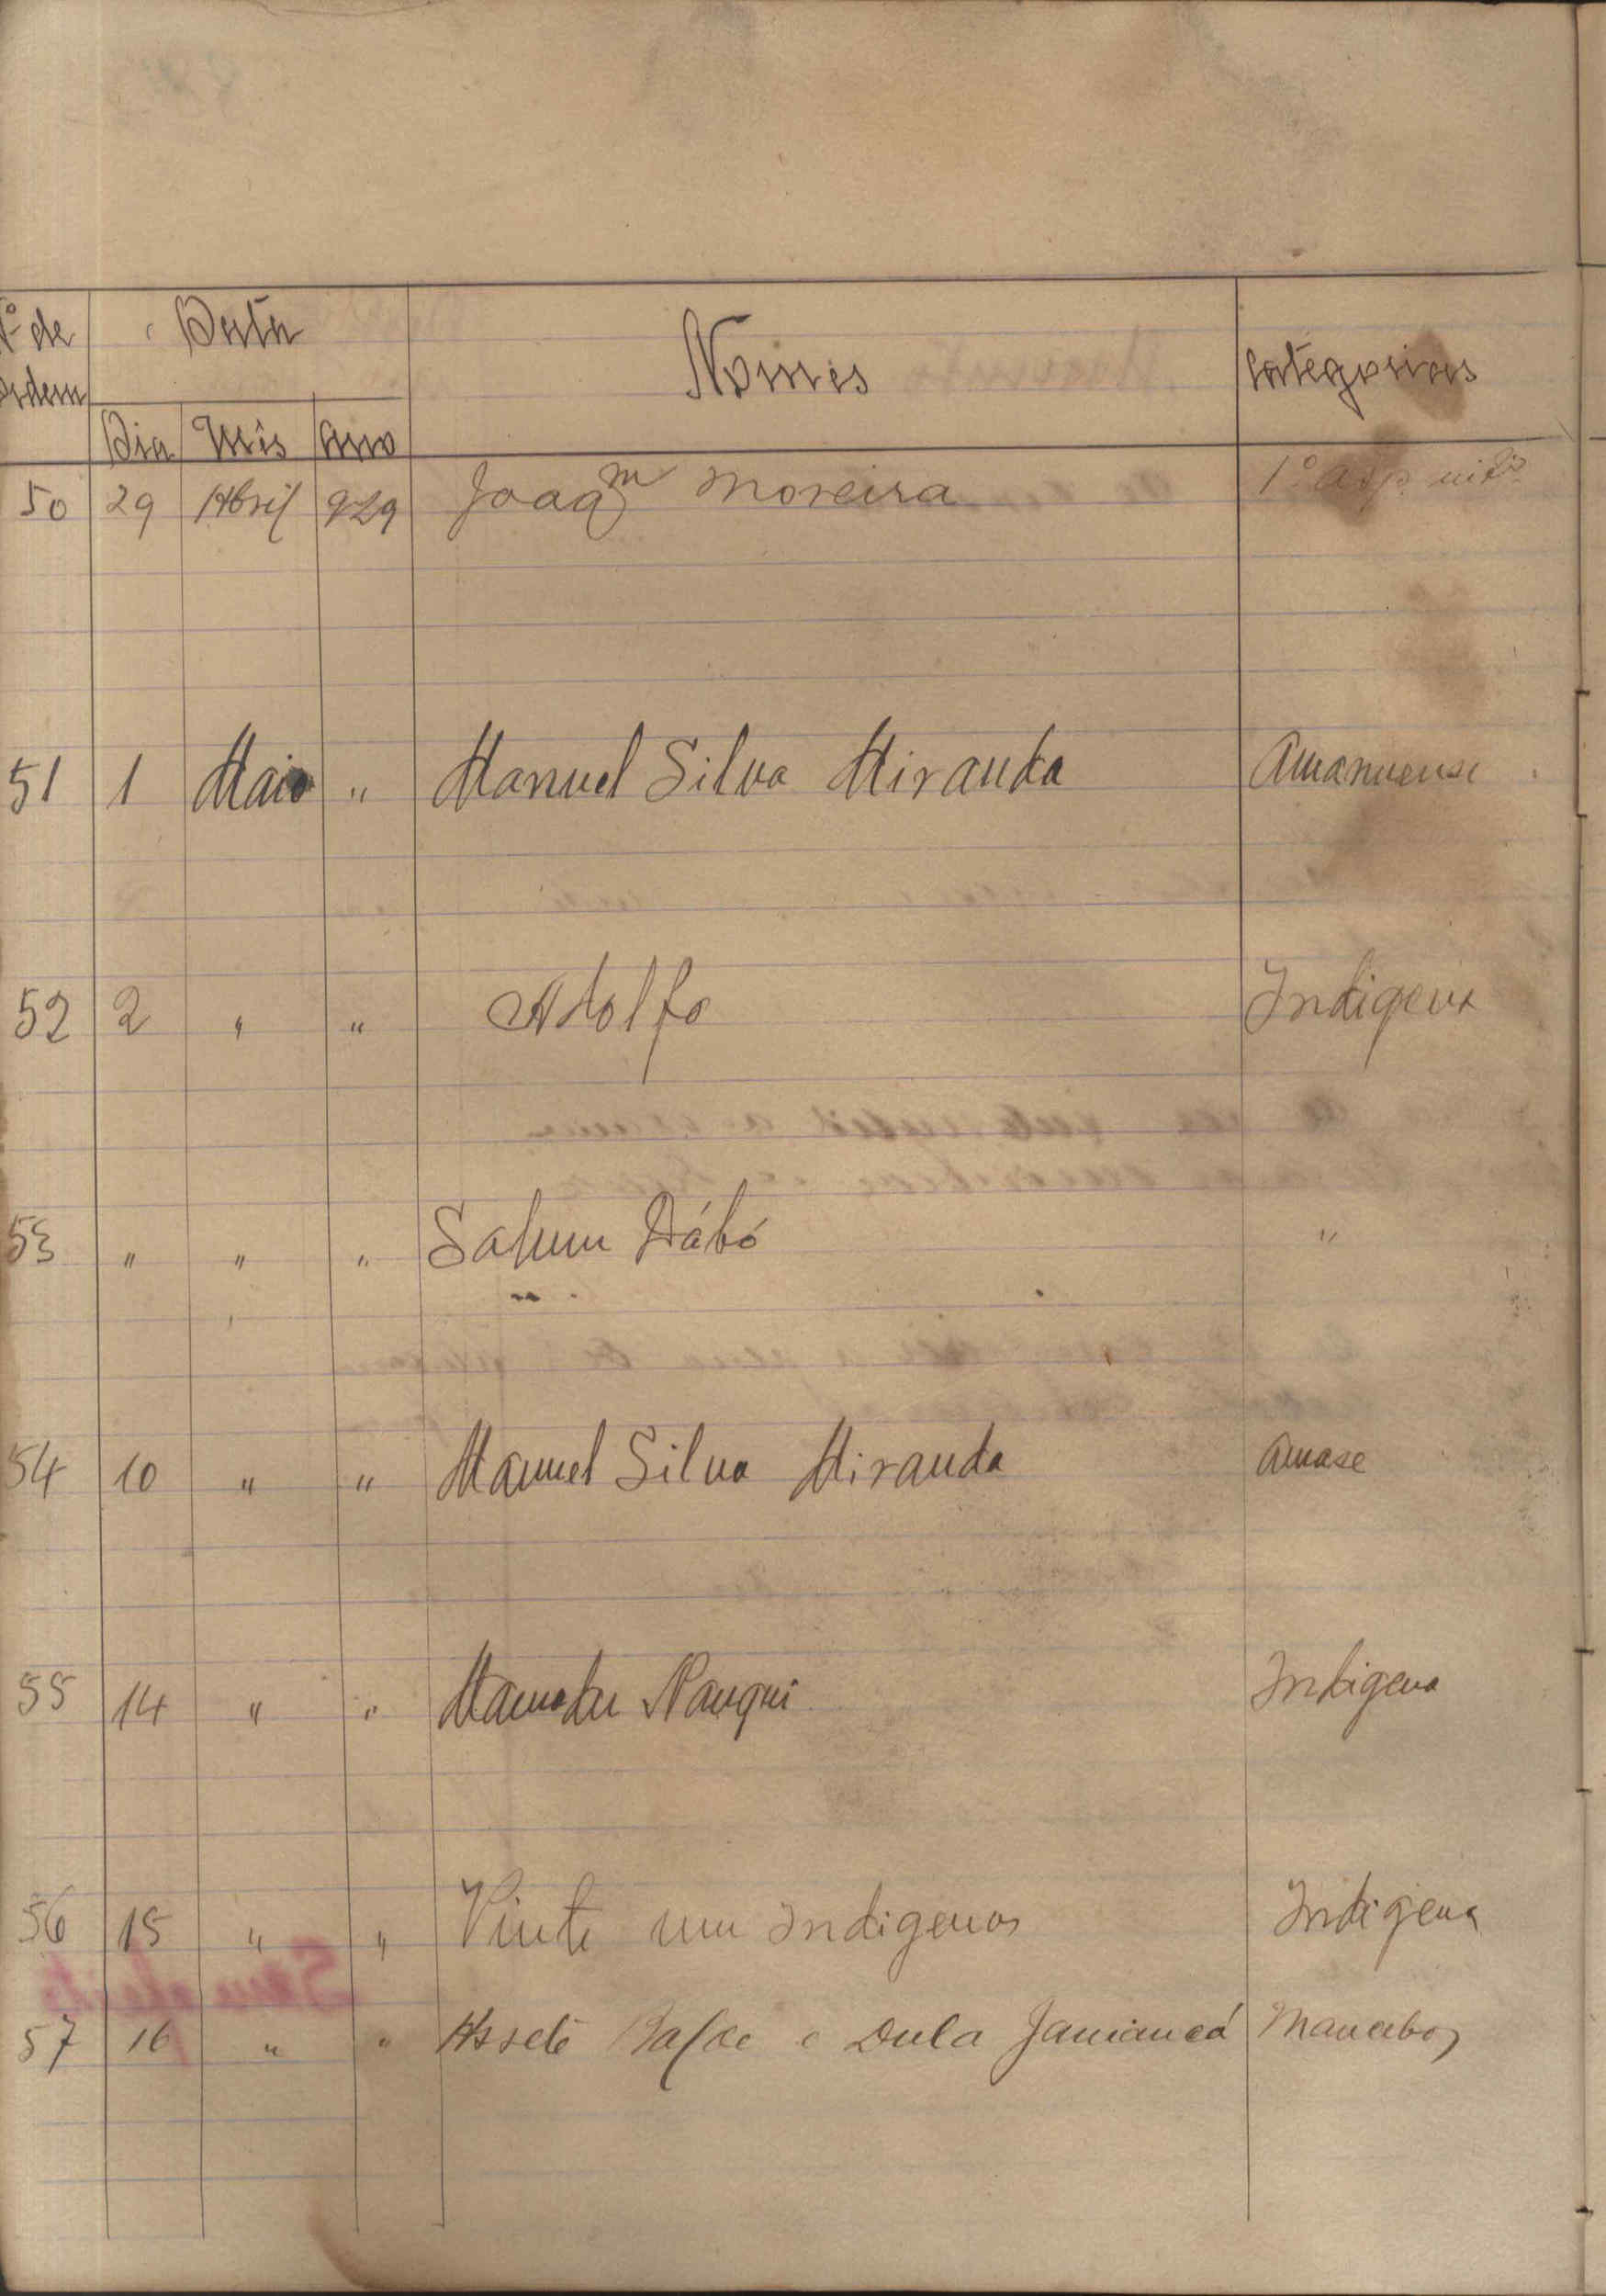 Nº de ordem Data Nomes Categorias
Dia Mês Ano
50 29 Abril 929 Joaqm Moreira 1º asp.
51 1 Maio " Manuel Silva Miranda Amanuense
52 2 " " Adolfo Indigena
53 " " " Dábó "
54 10 " " Manuel Silva Miranda Amase
55 14 " " Mamadu Nanqui Indigena
56 15 " " Vinte um Indigenas Indigena
57 16 " " e Dula Mancebos